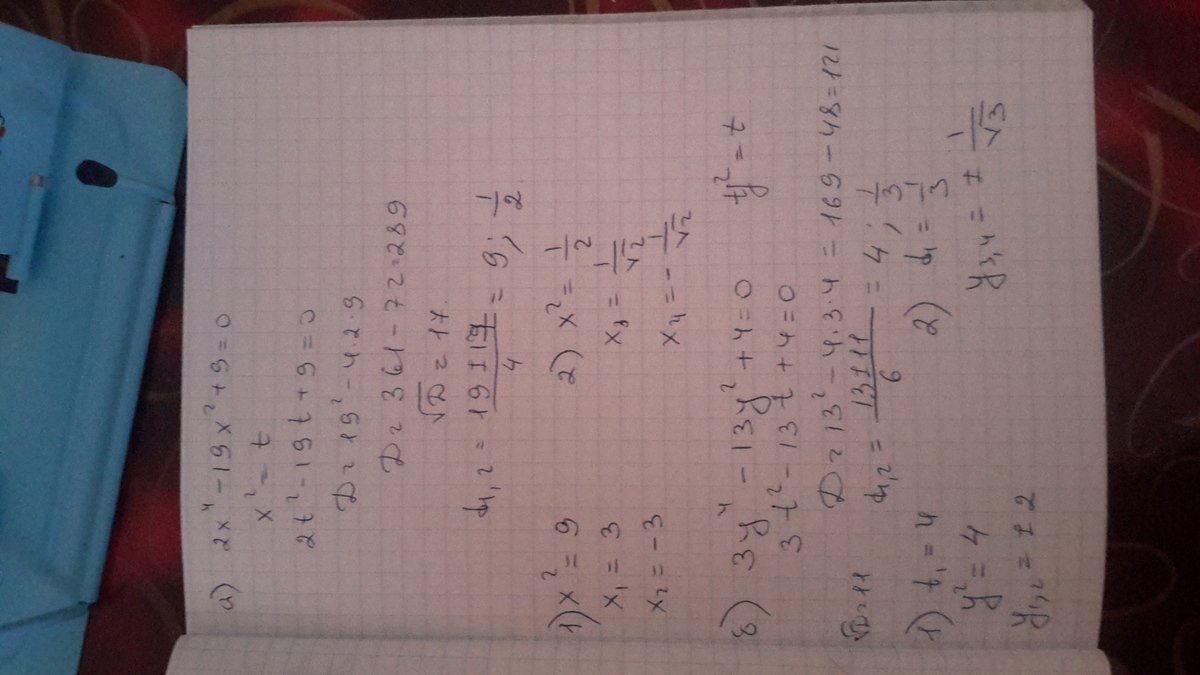 а) 2x⁴ – 19x² + 9 = 0
x² = t
2t² – 19t + 9 = 0
D = 19² – 4·2·9
D = 361 – 72 = 289
√D = 17.
t₁,₂ = (19 ± 17)/4 = 9; 1/2.
1) x² = 9
x₁ = 3
x₂ = –3
2) x² = 1/2
x₃ = 1/√2
x₄ = – 1/√2
б) 3y⁴ – 13y² + 4 = 0 y² = t
3t² – 13t + 4 = 0
D = 13² – 4·3·4 = 169 – 48 = 121
√D = 11 t₁,₂ = (13 ± 11)/6 = 4; 1/3
1) t₁ = 4
y² = 4
y₁,₂ = ± 2
2) t₁ = 1/3
y₃,₄ = ± 1/√3